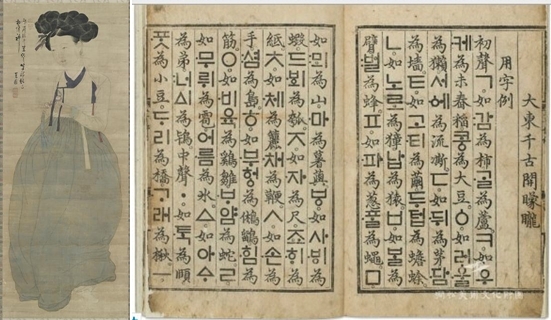 大東千古開矇矓
用字例
初聲ㄱ。如:감為柿。·ᄀᆞᆯ為蘆。ㅋ。如우
·케為未舂稻。콩為大豆。ㆁ。如러·울
為獺。서·에為流凘。ㄷ。如·뒤為茅。·담
為墻。ㅌ。如고·티為繭。두텁為蟾蜍。
ㄴ。如노로為獐。납為猿。ㅂ。如ᄇᆞᆯ為
臂。:벌為蜂。ㅍ。如·파為葱。·ᄑᆞᆯ為蠅。ㅁ。
如:뫼為山。·마為薯藇。ㅸ。如사·ᄫᅵ為
蝦。드·ᄫᅴ為瓠。ㅈ。如·자為尺。죠·ᄒᆡ為
紙。ㅊ。如·체為籭。·채為鞭。ㅅ。如·손為
手。:셤為島。ㅎ。如·부헝為鵂鶹。·힘為
筋。ㅇ。如·비육為鷄雛。·ᄇᆞ얌為蛇。ㄹ。
如·무뤼為雹。어·름為氷。ㅿ。如아ᅀᆞ
為弟。:너ᅀᅵ為鴇。中聲ㆍ。如·ᄐᆞᆨ為頤。
·ᄑᆞᆺ為小豆。ᄃᆞ리為橋。·ᄀᆞ래為楸。ㅡ。
澗松美術文化財團